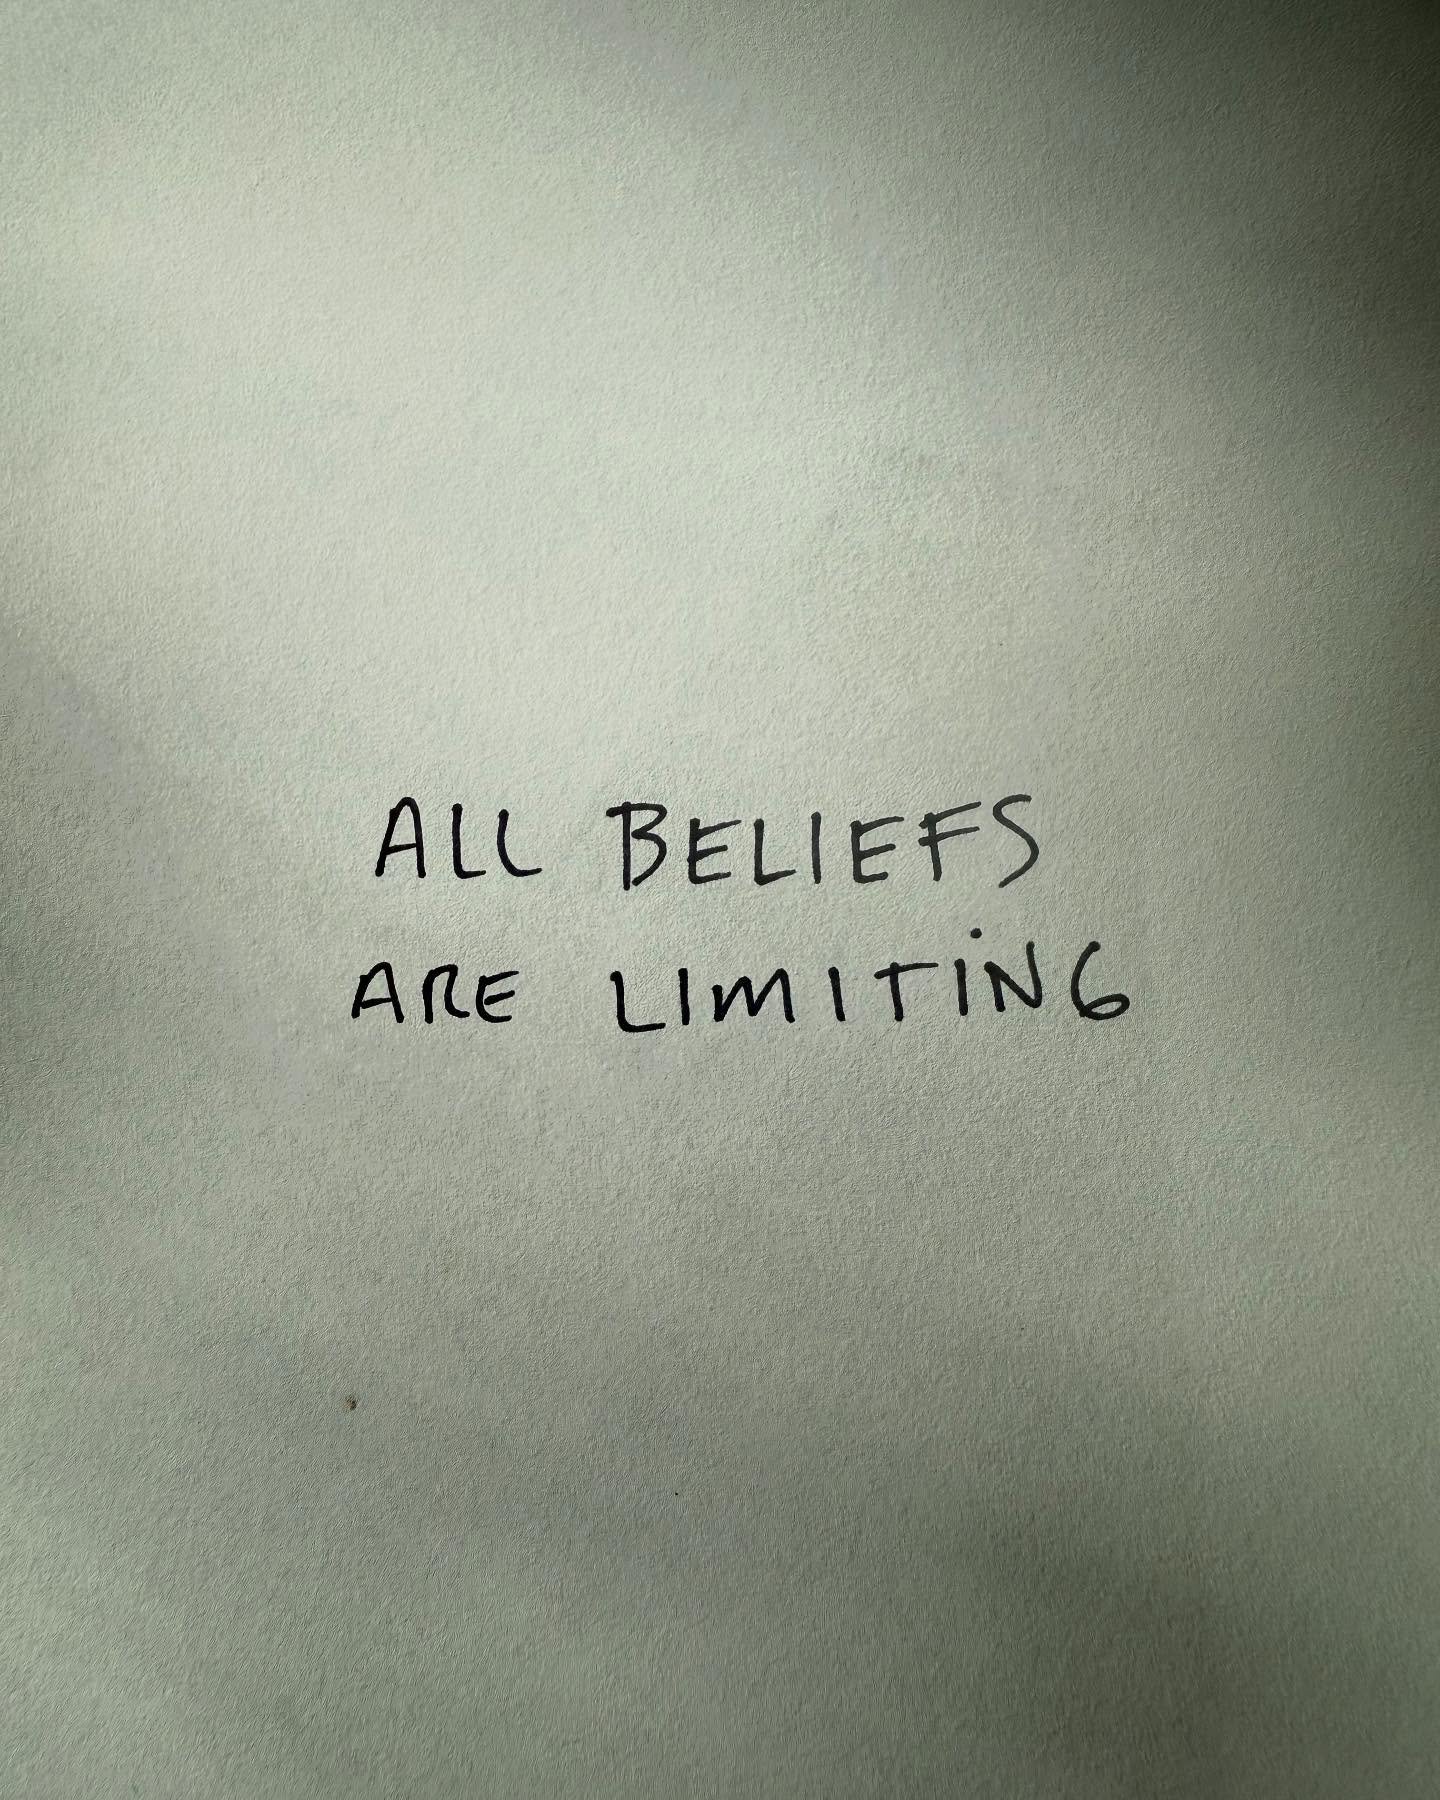 ALL BELIEFS
ARE LIMITING